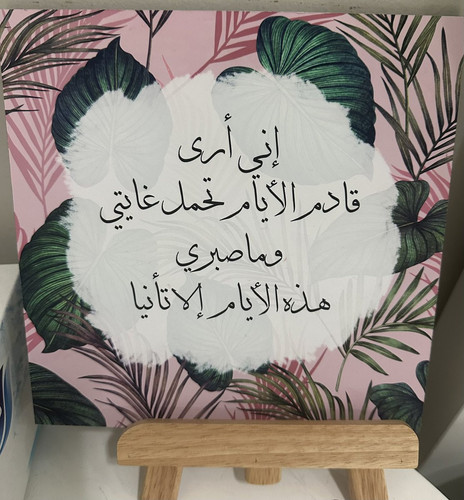 إني أرى
قادم الأيام تحمل غايتي
وما صبري
هذه الأيام إلا تأنيا